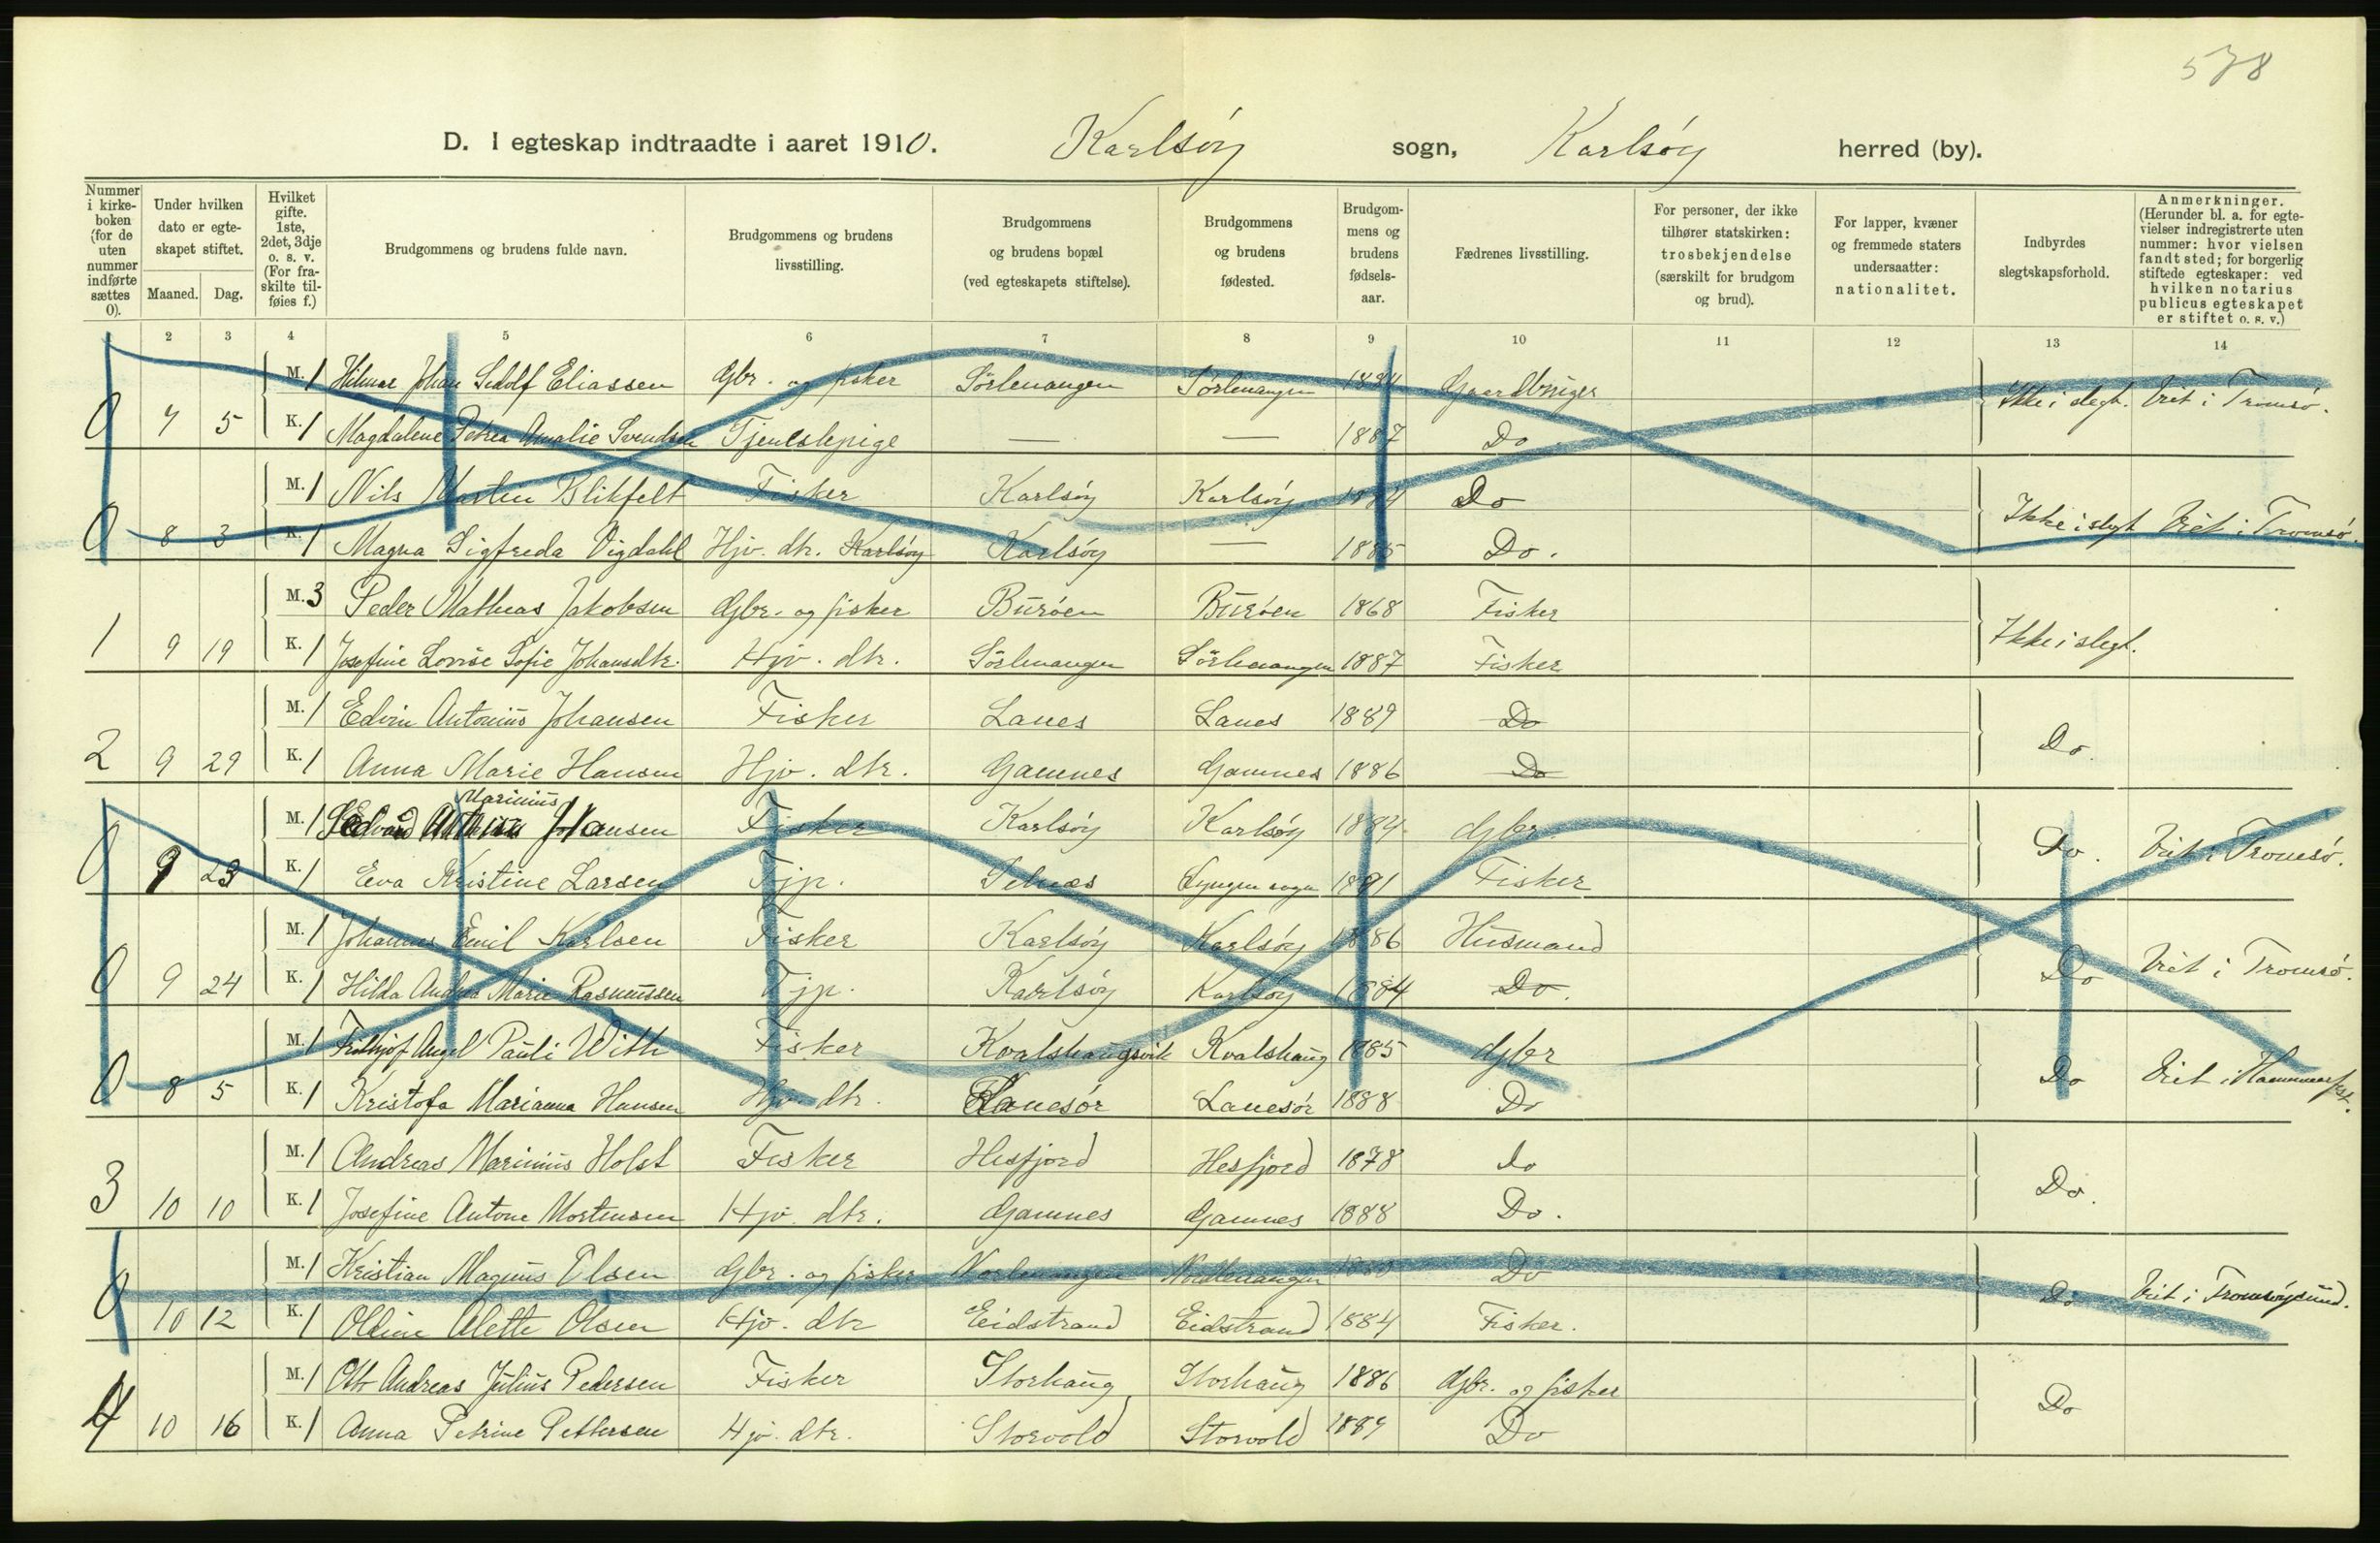 578
D. I egteskap indtraadte i aaret 1910. Karlsöy sogn, Karlsöy herred (by).
Nummer i kirke-boken (for de uten nummer indførte sættes 0).
Under hvilken dato er egte-skapet stiftet.
Maaned. Dag.
Hvilket gifte. 1ste, 2det, 3dje o. s. v. (For fra-skilte til-føies f.)
Brudgommens og brudens fulde navn.
Brudgommens og brudens livsstilling.
Brudgommens og brudens bopæl (ved egteskapets stiftelse).
Brudgommens og brudens fødested.
Brudgom-mens og brudens fødsels-aar.
Fædrenes livsstilling.
For personer, der ikke tilhører statskirken: trosbekjendelse (særskilt for brudgom og brud).
For lapper, kvæner og fremmede staters undersaatter: nationalitet.
Indbyrdes slegtskapsforhold.
Anmerkninger. (Herunder bl. a. for egte-vielser indregistrerte uten nummer: hvor vielsen fandt sted; for borgerlig stiftede egteskaper: ved hvilken notarius publicus egteskapet er stiftet o. s. v.)
2 3 4 5 6 7 8 9 10 11 12 13 14
M. 1 Hilmar Johan Sedolf Eliassen Gbr. og fisker Sörlenangen Sörlenangen 1884 Gaardbruger Ikke i slegt. Viet i Tromsö.
0 7 5 K. 1 Magdalene Petrea Amalie Svendsen Tjenestepige — — 1887 Do
M. 1 Nils Martin Blikfelt Fisker Karlsöy Karlsöy 1884 Do Ikke i slegt Viet i Tromsö.
0 8 3 K. 1 Magna Sigfreda Vigdahl Hjv. dtr. Karlsöy Karlsöy — 1885 Do.
M. 3 Peder Matheas Jakobsen Gbr. og fisker Buröen Buröen 1868 Fisker Ikke i slegt.
1 9 19 K. 1 Josefine Lovise Sofie Johansdtr. Hjv. dtr. Sörlenangen Sörlenangen 1887 Fisker
M. 1 Edvin Antonius Johansen Fisker Lanes Lanes 1889 Do Do.
2 9 29 K. 1 Anna Marie Hansen Hjv. dtr. Gamnes Gamnes 1886 Do
Marinius
M. 1 Johansen Fisker Karlsöy Karlsöy 1884 Gbr Do. Viet i Tromsö.
0 9 23 K. 1 Eva Kristine Larsen Tjp. Selnæs Lyngen sogn 1891 Fisker
M. 1 Johannes Emil Karlsen Fisker Karlsöy Karlsöy 1886 Husmand Do Viet i Tromsö.
0 9 24 K. 1 Hilda Andrea Marie Rasmussen Tjp. Karlsöy Karlsöy 1884 Do.
M. 1 Fridhjof Angel Pauli With Fisker Kvalshaugsvik Kvalshaug 1885 Gbr Do Viet i Hammerfest.
0 8 5 K. 1 Kristofa Marianna Hansen Hjv dtr. Lanesör Lanesör 1888 Do
M. 1 Andreas Marinius Holst Fisker Hesfjord Hesfjord 1878 do Do.
3 10 10 K. 1 Josefine Antone Mortensen Hjv. dtr. Gamnes Gamnes 1888 Do.
M. 1 Kristian Magnus Olsen Gbr. og fisker Nordlenangen Nordlenangen 1880 Do Do Viet i Tromsöysund.
0 10 12 K. 1 Oldine Alette Olsen Hjv. dtr Eidstrand Eidstrand 1884 Fisker.
M. 1 Ott Andreas Julius Pedersen Fisker Storhaug Storhaug 1886 Gbr. og fisker Do
4 10 16 K. 1 Anna Petrine Pettersen Hjv. dtr. Storvold Storvold 1889 Do